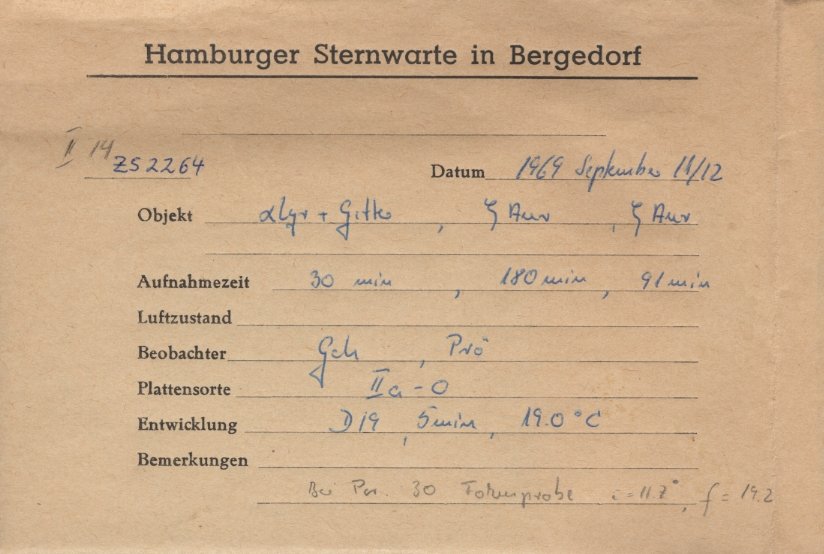 Hamburger Sternwarte in Bergedorf
II 14
ZS2264 Datum 1969 September 11/12
Objekt αLyr + Gitter, ζ Aur, ζ Aur
Aufnahmezeit 30 min, 180 min, 91 min
Luftzustand
Beobachter Gch, Prö
Plattensorte IIa-O
Entwicklung D19, 5min, 19.0°C
Bemerkungen
Bei Pos. 30 i = 11.7°, f = 19.2